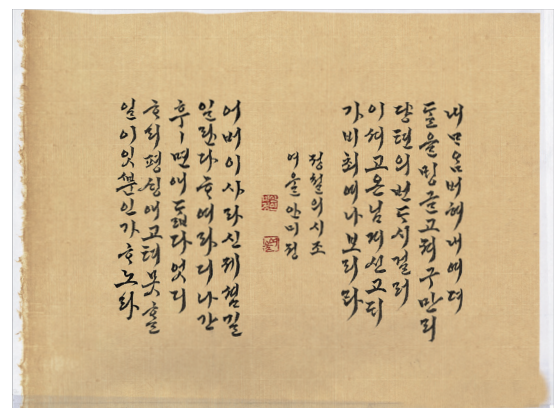 내ᄆᆞᄋᆞᆷ버혀내여뎌
ᄃᆞᆯ을밍글고쳐구만리
댱텬의번ᄃᆞ시걸려
이셔고온님계신고ᄃᆡ
가비최여나보리라
정철의시조
여울안미정
어버이사라신제셤길
일란다ᄒᆞ여라디나간
후ㅣ면애ᄃᆞᆲ다엇디
ᄒᆞ리평ᄉᆡᆼ애고텨못ᄒᆞᆯ
일이잇ᄲᅮᆫ인가ᄒᆞ노라